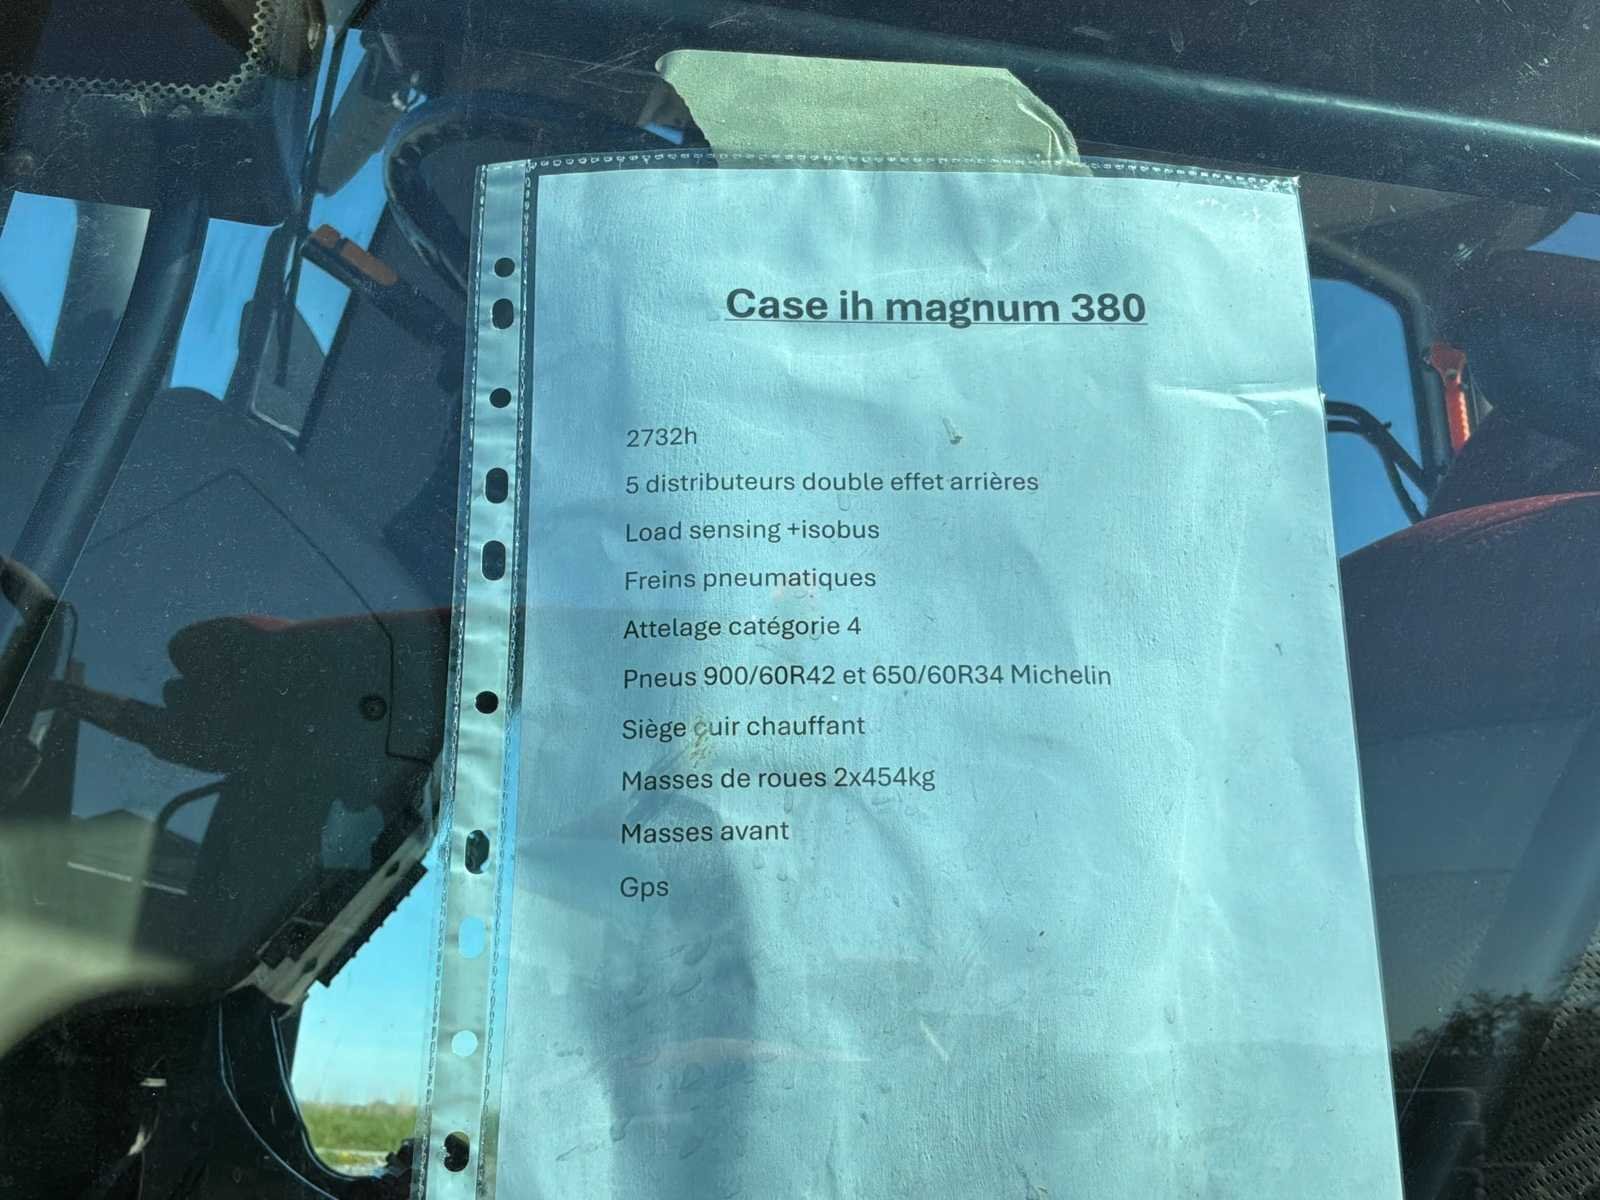 Case ih magnum 380
2732h
5 distributeurs double effet arrières
Load sensing +isobus
Freins pneumatiques
Attelage catégorie 4
Pneus 900/60R42 et 650/60R34 Michelin
Siège cuir chauffant
Masses de roues 2x454kg
Masses avant
Gps